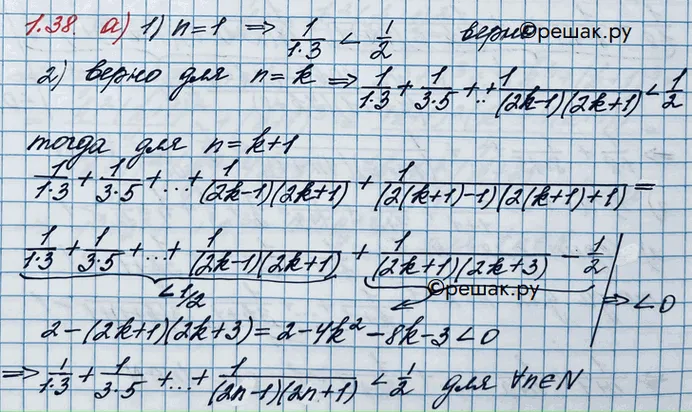 1.38. а) 1) n=1 ⇒ 1/(1·3) < 1/2 верно ©решак.ру
2) верно для n=k ⇒ 1/(1·3) + 1/(3·5) + ..+ 1/((2k-1)(2k+1)) < 1/2
тогда для n=k+1
1/(1·3) + 1/(3·5) + ...+ 1/((2k-1)(2k+1)) + 1/((2(k+1)-1)(2(k+1)+1)) =
1/(1·3) + 1/(3·5) + ...+ 1/((2k-1)(2k+1)) + 1/((2k+1)(2k+3)) - 1/2 | ⇒ <0
<1/2 ©решак.ру
2-(2k+1)(2k+3) = 2-4k²-8k-3 <0
⇒ 1/(1·3) + 1/(3·5) + ...+ 1/((2n-1)(2n+1)) < 1/2 для ∀n∈N